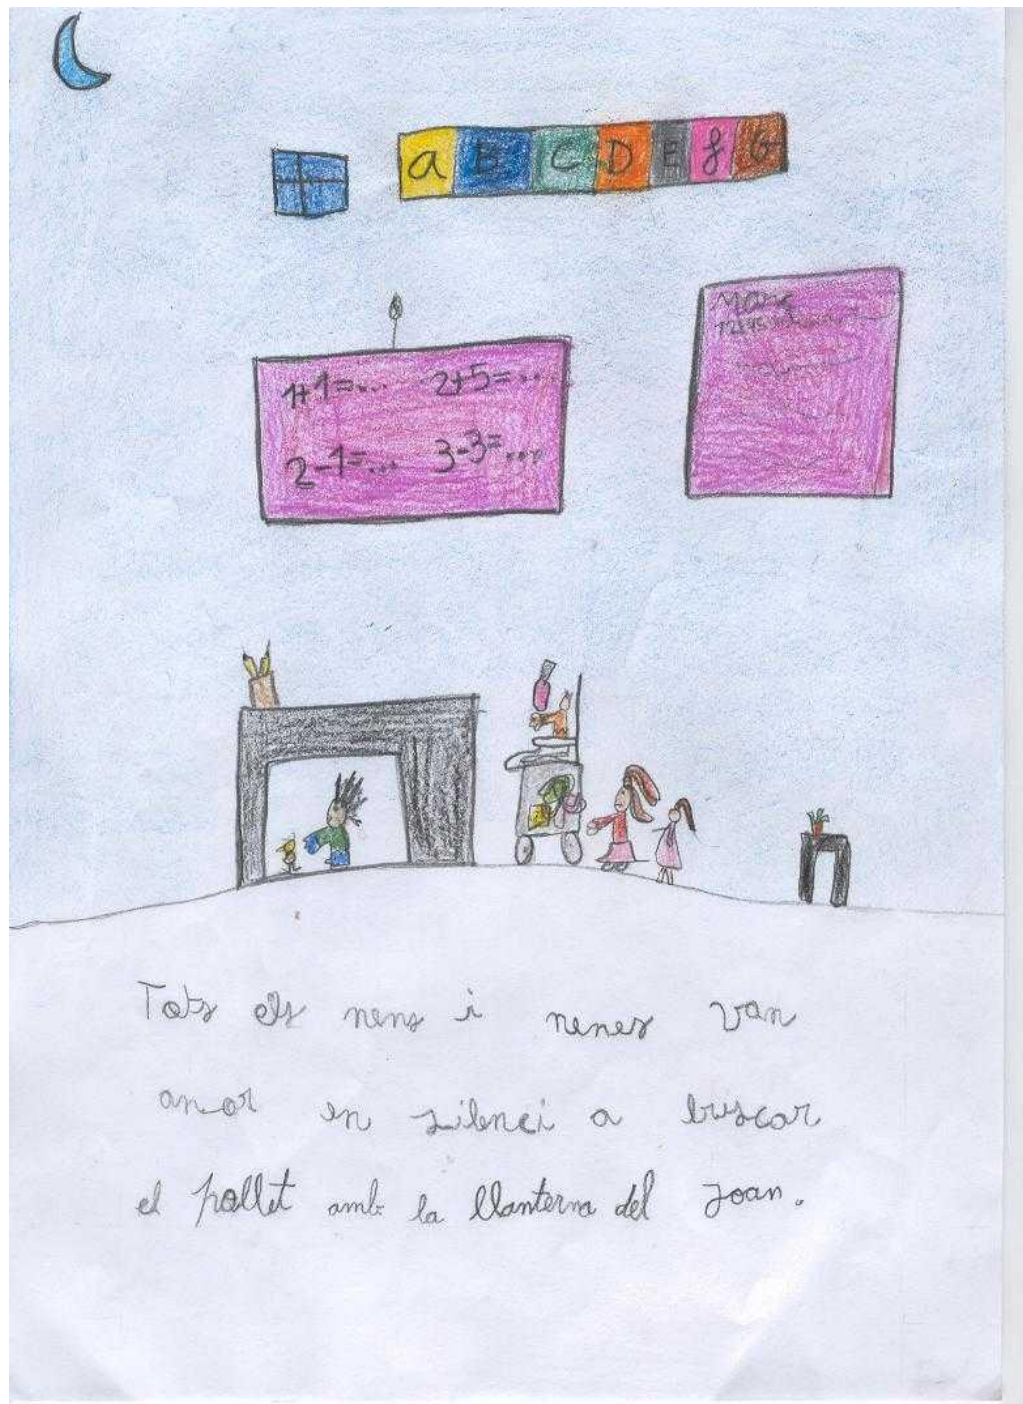 a B C D E f G
1+1=... 2+5=...
2-1=... 3-3=...
Marc
12345
Tots els nens i nenes van
anar en silenci a buscar
el pollet amb la llanterna del Joan.